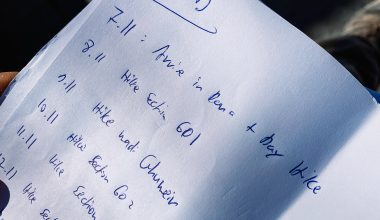 7.11: Arrive in Dana + Day Hike
8.11 Hike Section 601
9.11 Hike wadi Ghuweir
10.11 Hike Section 602
11.11 Hike Section
12.11 Hike Section